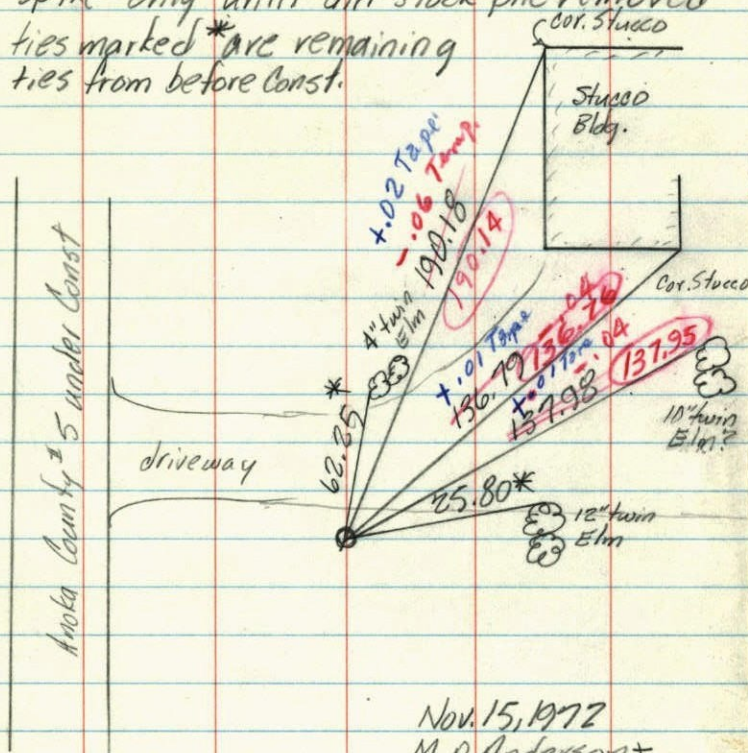 ties marked * are remaining
ties from before Const.
Cor. Stucco
Stucco
Bldg.
+.02 Tape
-.06 Temp.
190.18
190.14
4" twin
Elm
* 62.25
+.01 Tape
-.04
136.79
136.76
Cor. Stucco
+.01 Tape
-.04
137.98
137.95
10" twin
Elm?
25.80 *
12" twin
Elm
driveway
Anoka County #5 under Const
Nov. 15, 1972